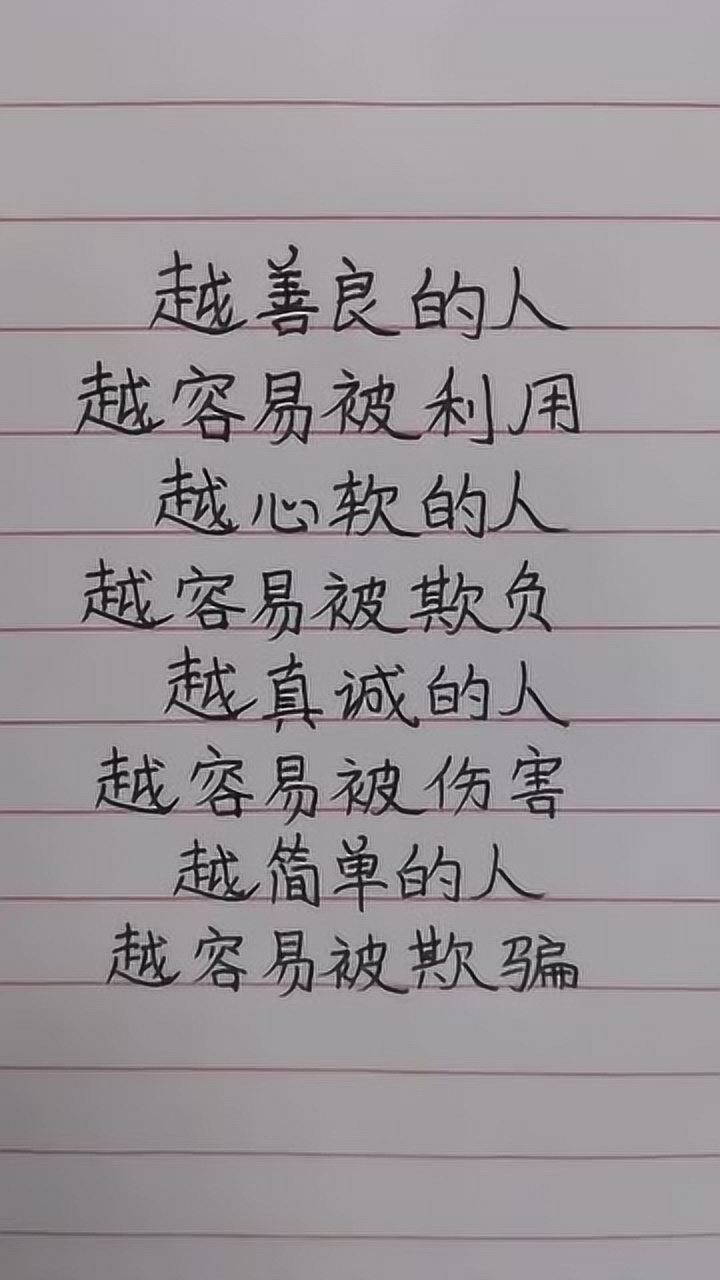 越善良的人
越容易被利用
越心软的人
越容易被欺负
越真诚的人
越容易被伤害
越简单的人
越容易被欺骗